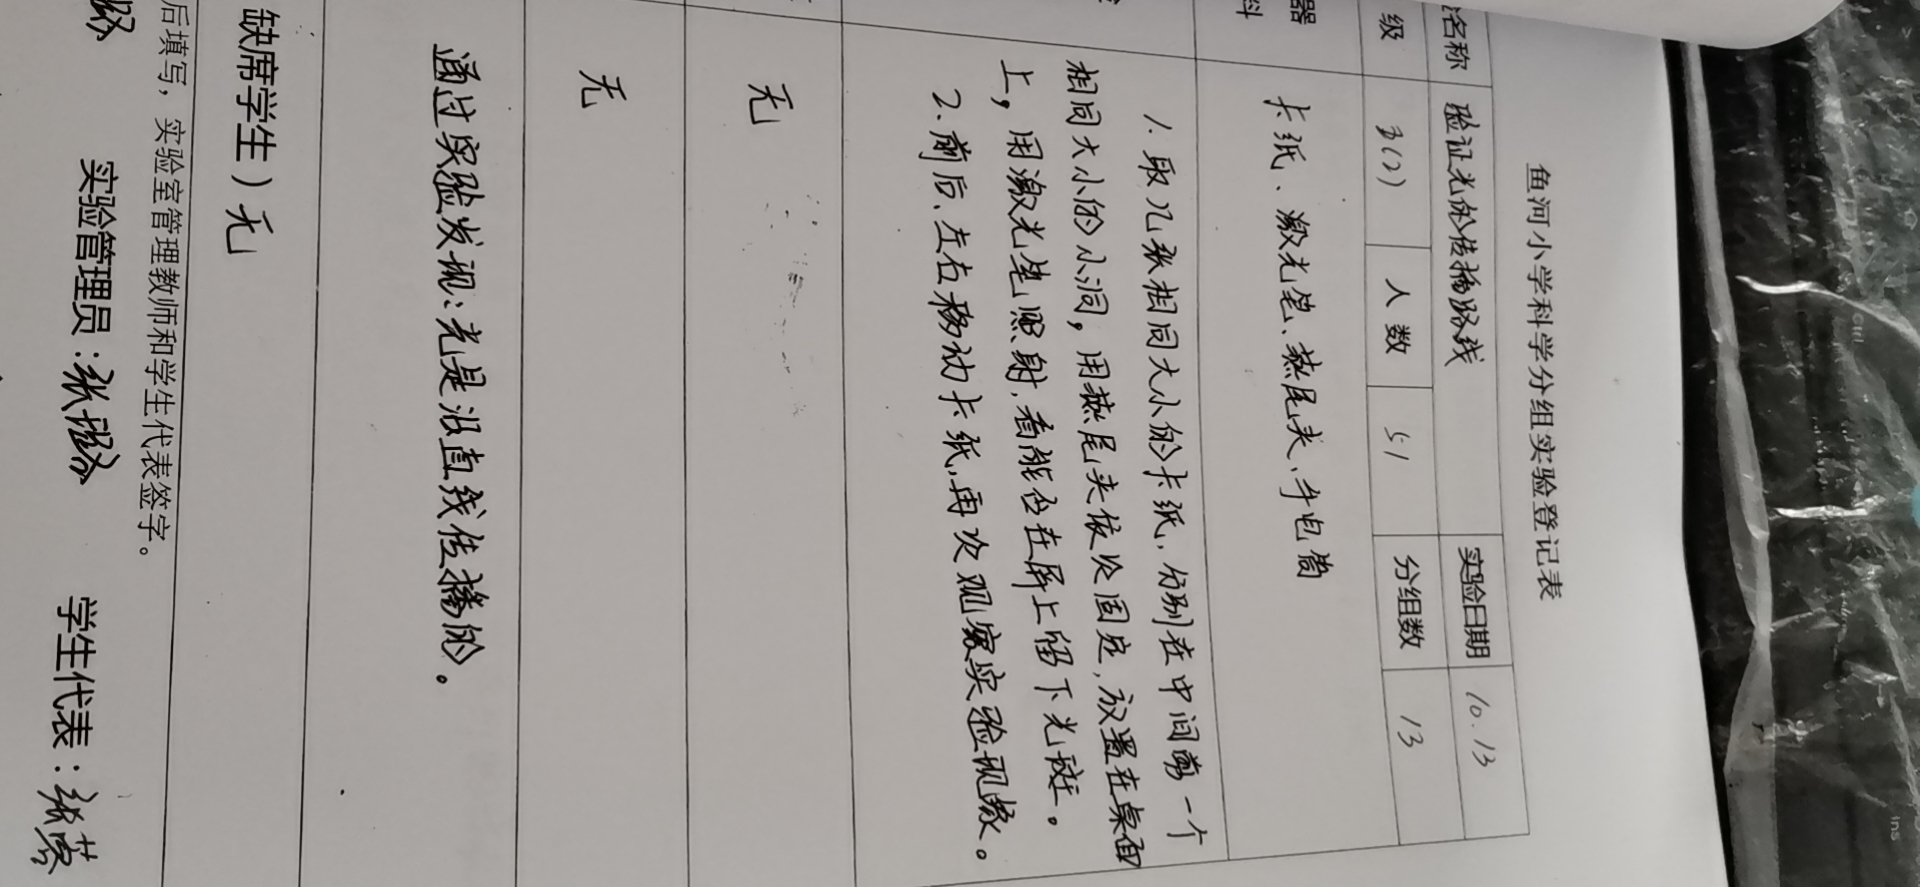 鱼河小学科学分组实验登记表
名称 验证光的传播路线 实验日期 10.13
级 人数 51 分组数 13
器
料
卡纸、激光笔、热尾夹、手电筒
1.取几张相同大小的卡纸,分别在中间剪一个
相同大小的小洞,用热尾夹依次固定,放置在桌面
上,用激光笔照射,看能否在屏上留下光斑。
2.前后、左右移动卡纸,再次观察实验现象。
无
无
通过实验发现:光是沿直线传播的。
缺席学生)无
后填写,实验室管理教师和学生代表签字。
实验管理员:张璐 学生代表:张蓉